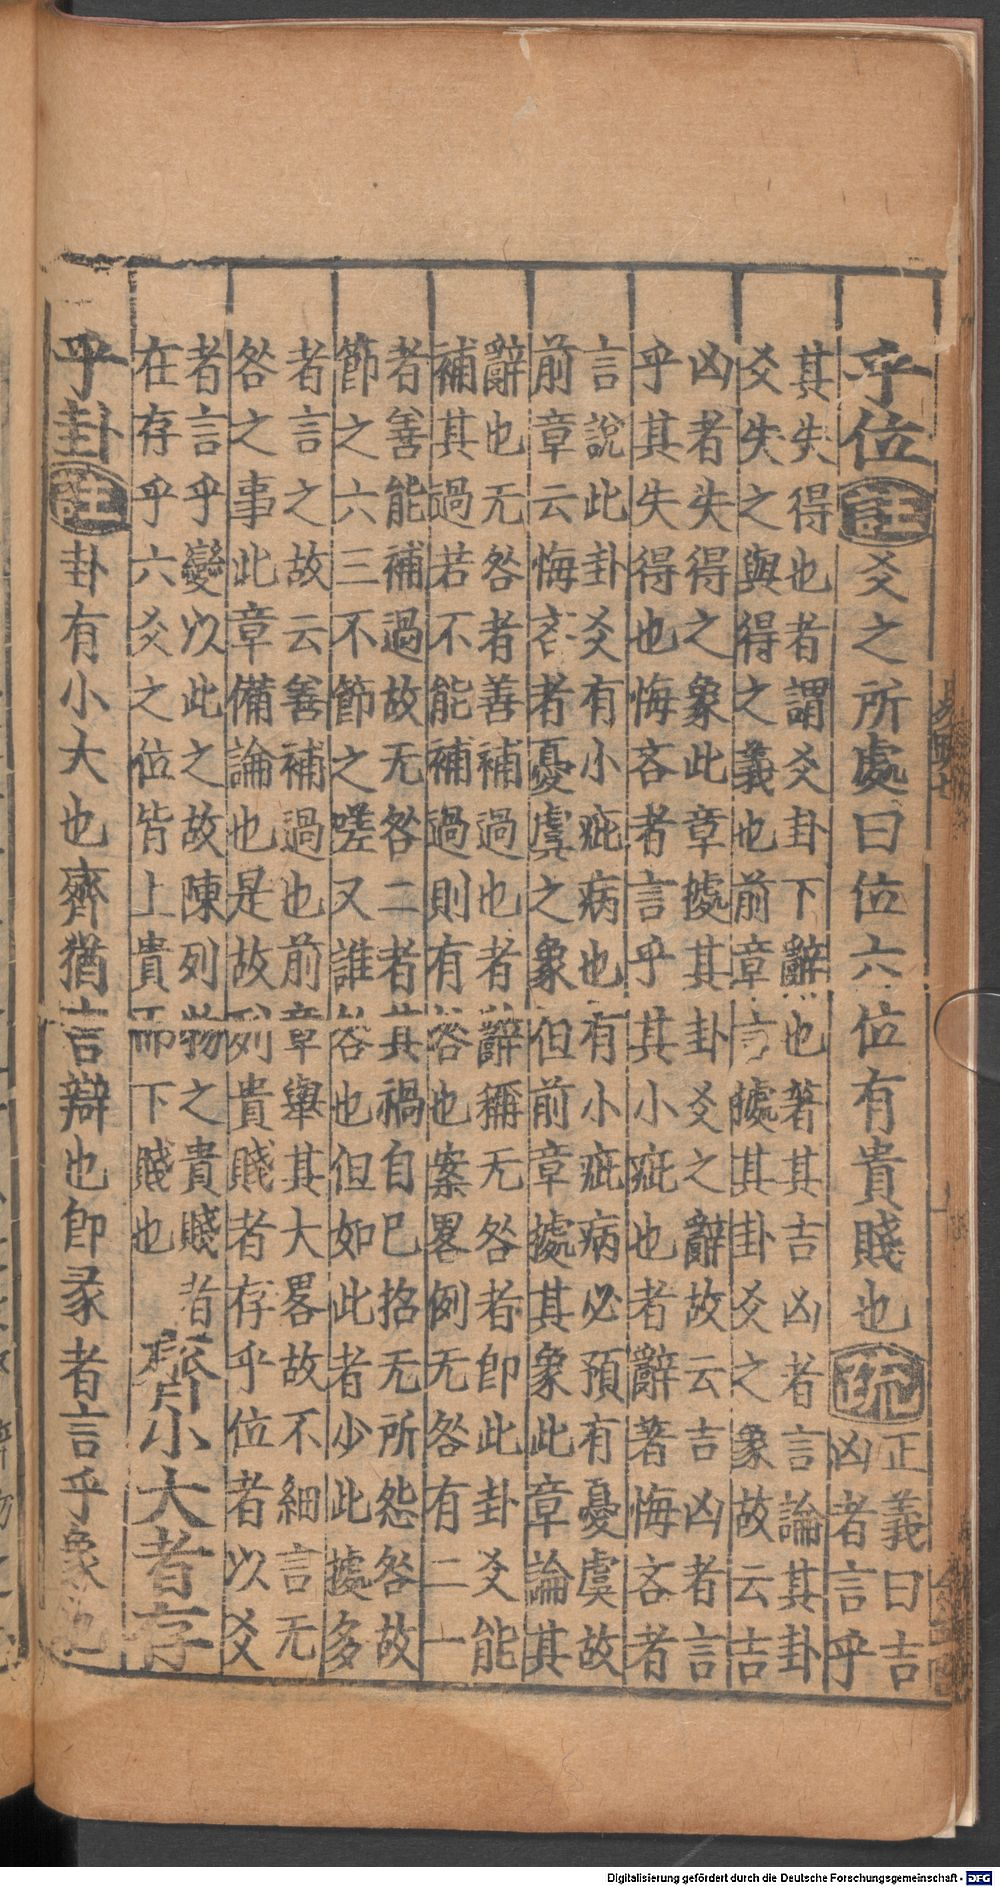 乎位註爻之所處曰位六位有貴賤也疏正義曰吉
凶者言乎
其失得也者謂爻卦下辭也著其吉凶者言論其卦
爻失之與得之義也前章言據其卦爻之象故云吉
凶者失得之象此章據其卦爻之辭故云吉凶者言
乎其失得也悔吝者言乎其小疵也者辭著悔吝者
言說此卦爻有小疵病也有小疵病必預有憂虞故
前章云悔吝者憂虞之象但前章據其象此章論其
辭也无咎者善補過也者辭稱无咎者卽此卦爻能
補其過若不能補過則有咎也案畧例无咎有二一
者善能補過故无咎二者其禍自已招无所怨咎故
節之六三不節之嗟又誰咎也但如此者少此據多
者言之故云善補過也前章舉其大畧故不細言无
咎之事此章備論也是故列貴賤者存乎位者以爻
者言乎變以此之故陳列物之貴賤者
在存乎六爻之位皆上貴而下賤也
齊小大者存
乎卦註卦有小大也齊猶言辯也卽彖者言乎象也
Digitalisierung gefördert durch die Deutsche Forschungsgemeinschaft - DFG